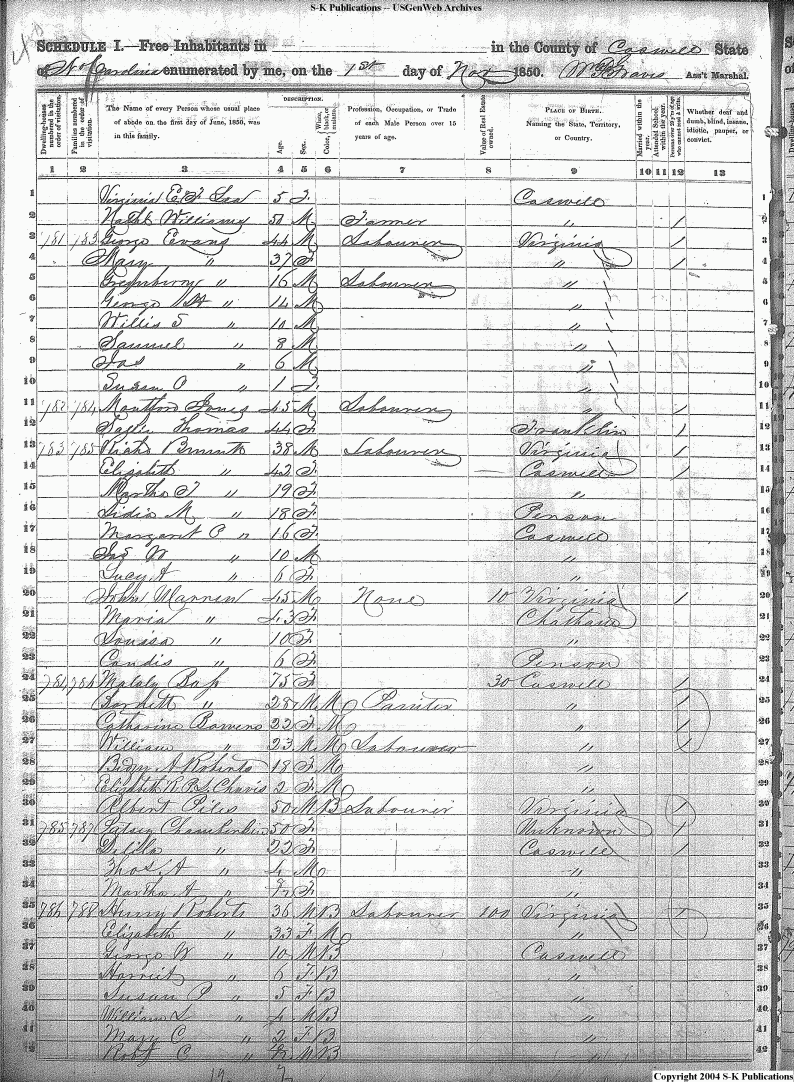 S-K Publications -- USGenWeb Archives
SCHEDULE I.—Free Inhabitants in in the County of Caswell State
of N Carolina enumerated by me, on the 1st day of Nov 1850. Ass't Marshal.
Dwelling-houses numbered in the order of visitation.
Families numbered in the order of visitation.
The Name of every Person whose usual place of abode on the first day of June, 1850, was in this family.
DESCRIPTION.
Age.
Sex.
Color, White, black, or mulatto.
Profession, Occupation, or Trade of each Male Person over 15 years of age.
Value of Real Estate owned.
PLACE OF BIRTH.
Naming the State, Territory, or Country.
Married within the year.
Attended School within the year.
Persons over 20 y'rs of age who cannot read & write.
Whether deaf and dumb, blind, insane, idiotic, pauper, or convict.
1 2 3 4 5 6 7 8 9 10 11 12 13
1 Virginia E. F. 5 F Caswell 1
2 Williams 50 M Farmer " / 2
3 781 783 George Evans 44 M Labourer Virginia / 3
4 Mary " 37 F " / 4
5 Greenberry " 16 M Labourer " 5
6 George " 14 M " 6
7 Willis S " 10 M " 7
8 Samuel " 8 M " 8
9 Jas " 6 M " 9
10 Susan O " 1 F " 10
11 782 784 Montford Jones 45 M Labourer " / 11
12 Thomas 44 F Franklin / 12
13 783 785 38 M Labourer Virginia / 13
14 Elizabeth " 42 F Caswell / 14
15 Martha F " 19 F " 15
16 Lidia M " 18 F Person 16
17 Margaret C " 16 F Caswell 17
18 Jas W " 10 M " 18
19 Lucy A " 6 F " 19
20 John Warren 45 M None 10 Virginia / 20
21 Maria " 43 F Chatham 21
22 Louisa " 10 F " 22
23 Candis " 6 F Person 23
24 784 786 Bass 75 F 30 Caswell / 24
25 " 28 M M Painter " / 25
26 Catharine Bowers 22 F M " / 26
27 William " 23 M M Labourer " / 27
28 A Roberts 18 F M " 28
29 Elizabeth R. B. L. Chavis 2 F M " 29
30 Albert Piles 50 M B Labourer Virginia / 30
31 785 787 Patsey Chamberlin 50 F Unknown / 31
32 Delilla " 22 F Caswell / 32
33 Thos A " 4 M " 33
34 Martha A " F " 34
35 786 788 Henry Roberts 36 M B Labourer 100 Virginia / 35
36 Elizabeth " 33 F M " 36
37 George W " 10 M B Caswell 37
38 Harriet " 6 F B " 38
39 Susan P " 5 F B " 39
40 William L " 4 M B " 40
41 Mary C " 2 F B " 41
42 Robt C " M B " 42
Copyright 2004 S-K Publications